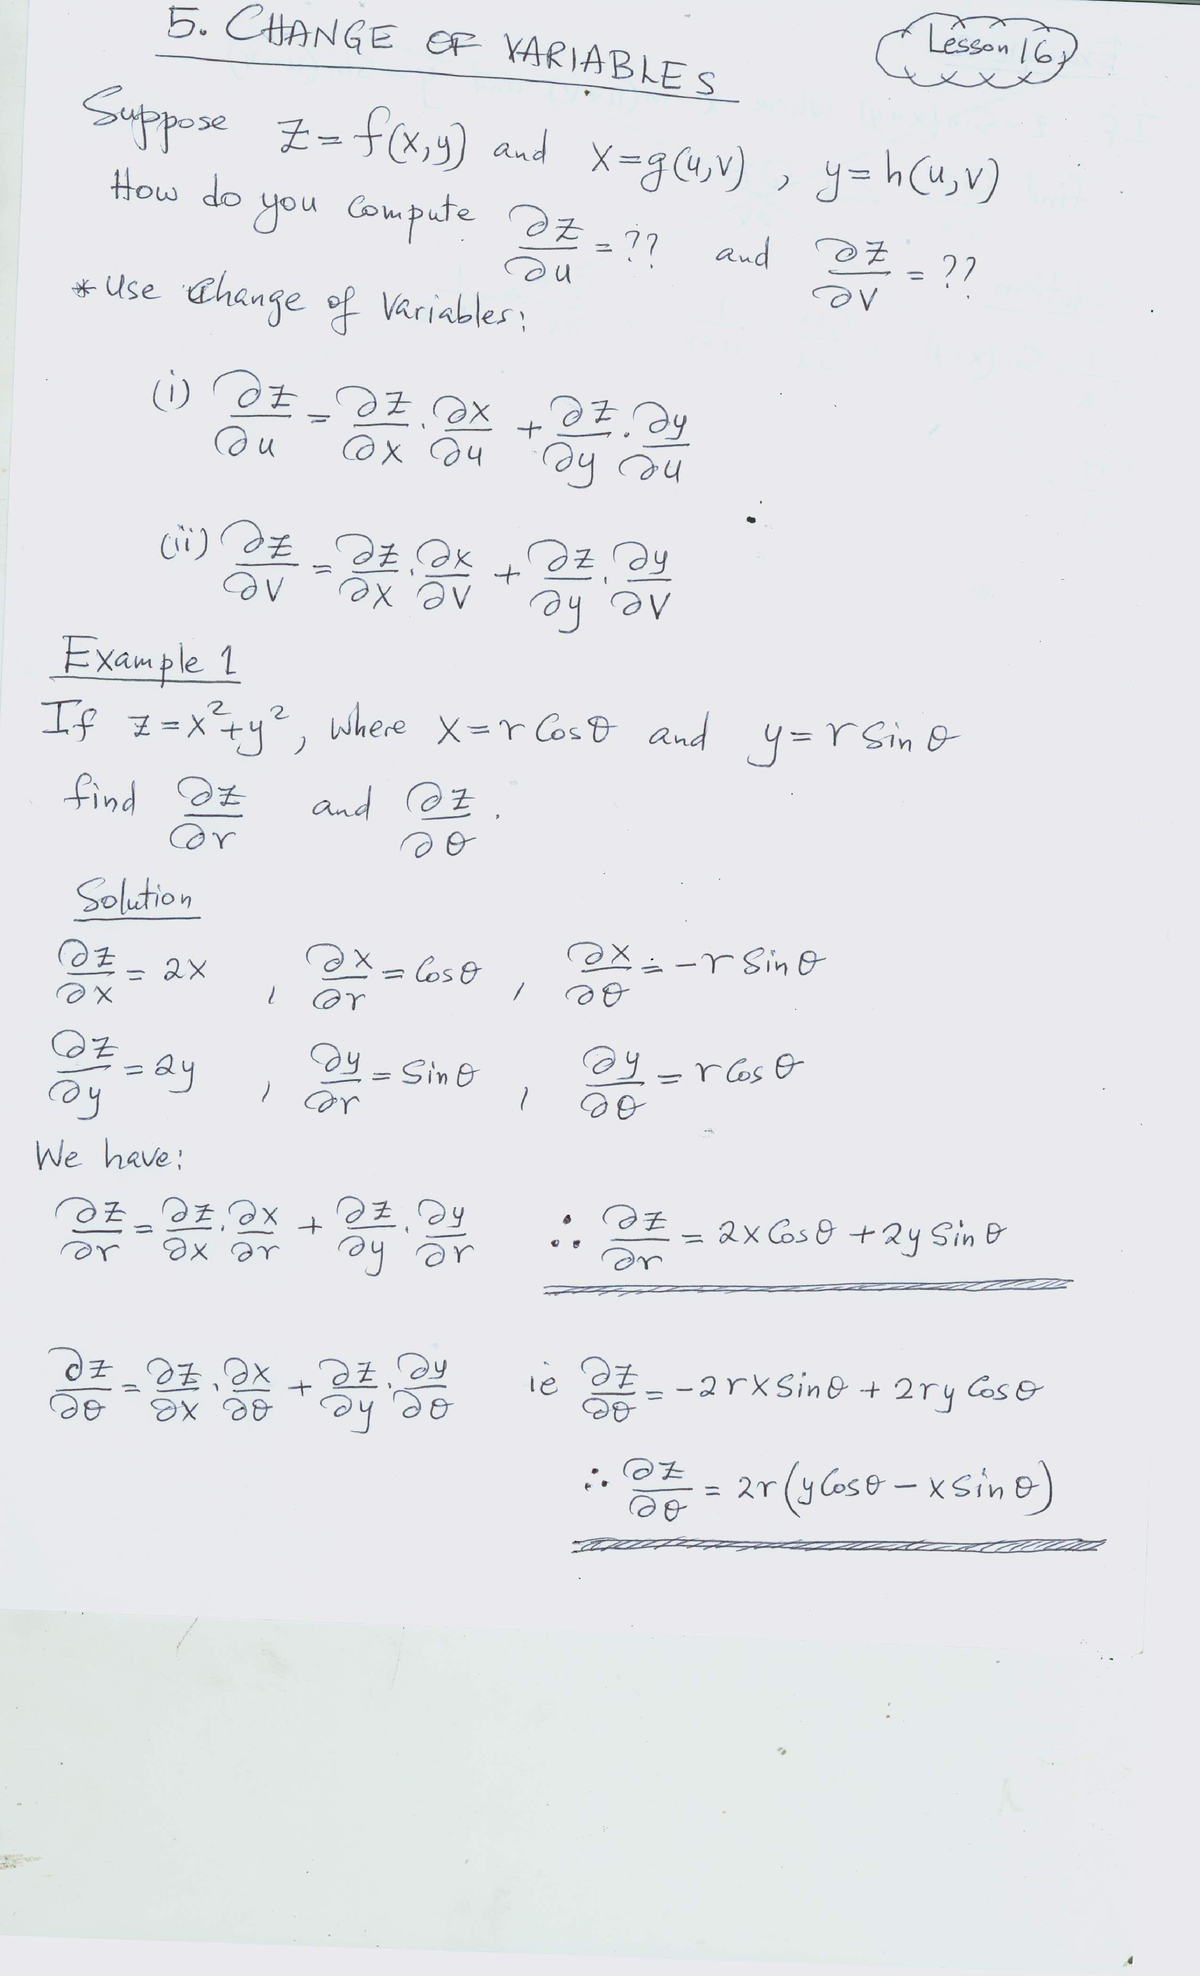 5. CHANGE OF VARIABLES
Lesson 16
Suppose z = f(x,y) and x=g(u,v) , y=h(u,v)
How do you compute ∂z/∂u = ?? and ∂z/∂v = ??
* Use Change of Variables:
(i) ∂z/∂u = ∂z/∂x . ∂x/∂u + ∂z/∂y . ∂y/∂u
(ii) ∂z/∂v = ∂z/∂x . ∂x/∂v + ∂z/∂y . ∂y/∂v
Example 1
If z = x²+y², where x=r Cosθ and y=r Sin θ
find ∂z/∂r and ∂z/∂θ .
Solution
∂z/∂x = 2x , ∂x/∂r = Cosθ , ∂x/∂θ = -r Sin θ
∂z/∂y = 2y , ∂y/∂r = Sin θ , ∂y/∂θ = r Cos θ
We have:
∂z/∂r = ∂z/∂x . ∂x/∂r + ∂z/∂y . ∂y/∂r ∴ ∂z/∂r = 2x Cosθ + 2y Sin θ
∂z/∂θ = ∂z/∂x . ∂x/∂θ + ∂z/∂y . ∂y/∂θ ie ∂z/∂θ = -2rx Sinθ + 2ry Cosθ
∴ ∂z/∂θ = 2r(y Cosθ - x Sin θ)